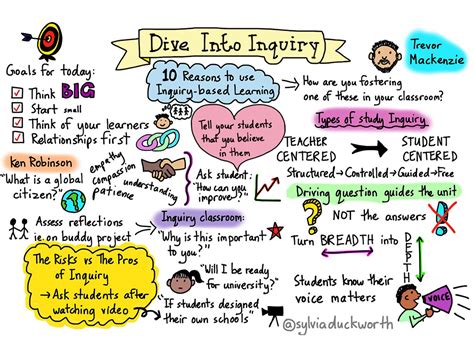 Dive Into Inquiry
Trevor
Mackenzie
Goals for today:
Think BIG
Start small
Think of your learners
Relationships first
10 Reasons to use
Inquiry-based Learning
How are you fostering
one of these in your classroom?
Tell your students
that you believe
in them
Types of study Inquiry
TEACHER
CENTERED
STUDENT
CENTERED
Structured→Controlled→Guided→Free
Ken Robinson
"What is a global
citizen?"
empathy
compassion
patience
understanding
Ask student:
"How can you
improve?"
Driving question guides the unit
NOT the answers
Assess reflections
ie. on buddy project
Inquiry classroom:
"Why is this important
to you?"
Turn BREADTH into
DEPTH
The Risks vs The Pros
of Inquiry
→ Ask students after
watching video
"Will I be ready for
university?"
"If students designed
their own schools"
Students know their
voice matters
VOICE
@sylviaduckworth